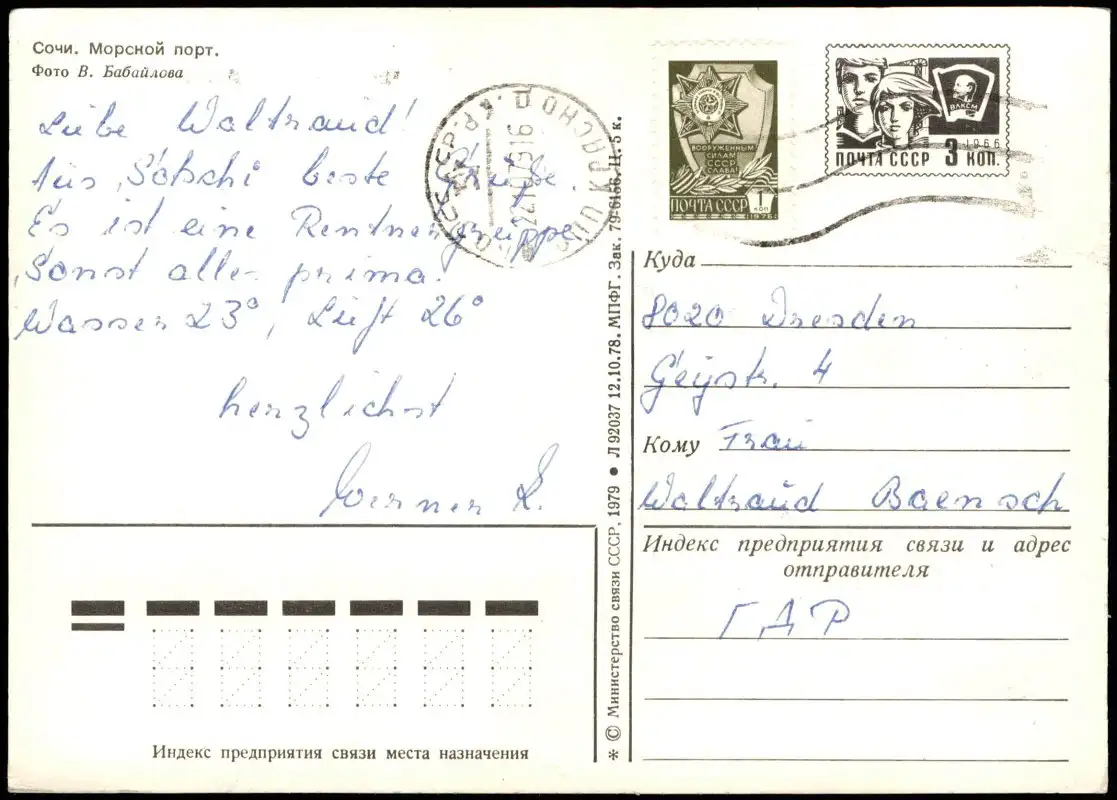 Сочи. Морской порт.
Фото В. Бабайлова
Liebe Waltraud!
Aus Sotschi beste Grüße.
Es ist eine Rentnergruppe.
Sonst alles prima.
Wasser 23°, Luft 26°
herzlichst
Werner L.
ВООРУЖЕННЫМ
СИЛАМ
СССР
СЛАВА!
ПОЧТА СССР 1
КОП
1976
ВЛКСМ
1966
ПОЧТА СССР 3 КОП.
Куда
8020 Dresden
Geystr. 4
Кому Frau
Waltraud Baensch
Индекс предприятия связи и адрес
отправителя
ГДР
Индекс предприятия связи места назначения
* © Министерство связи СССР, 1979 • Л 92037 12.10.78. МПФГ. Зак. 79-6156. Ц. 5 к.